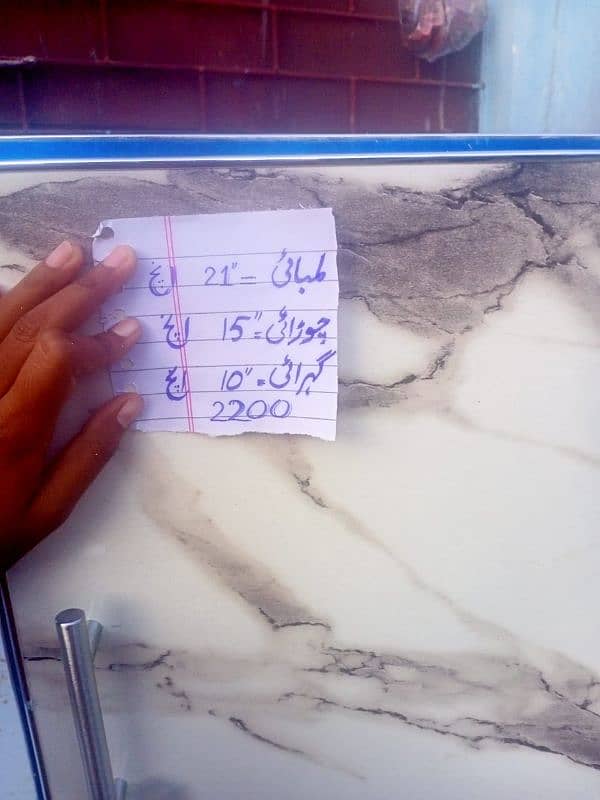 لمبائی = 21" انچ
چوڑائی = 15" انچ
گہرائی = 10" انچ
2200